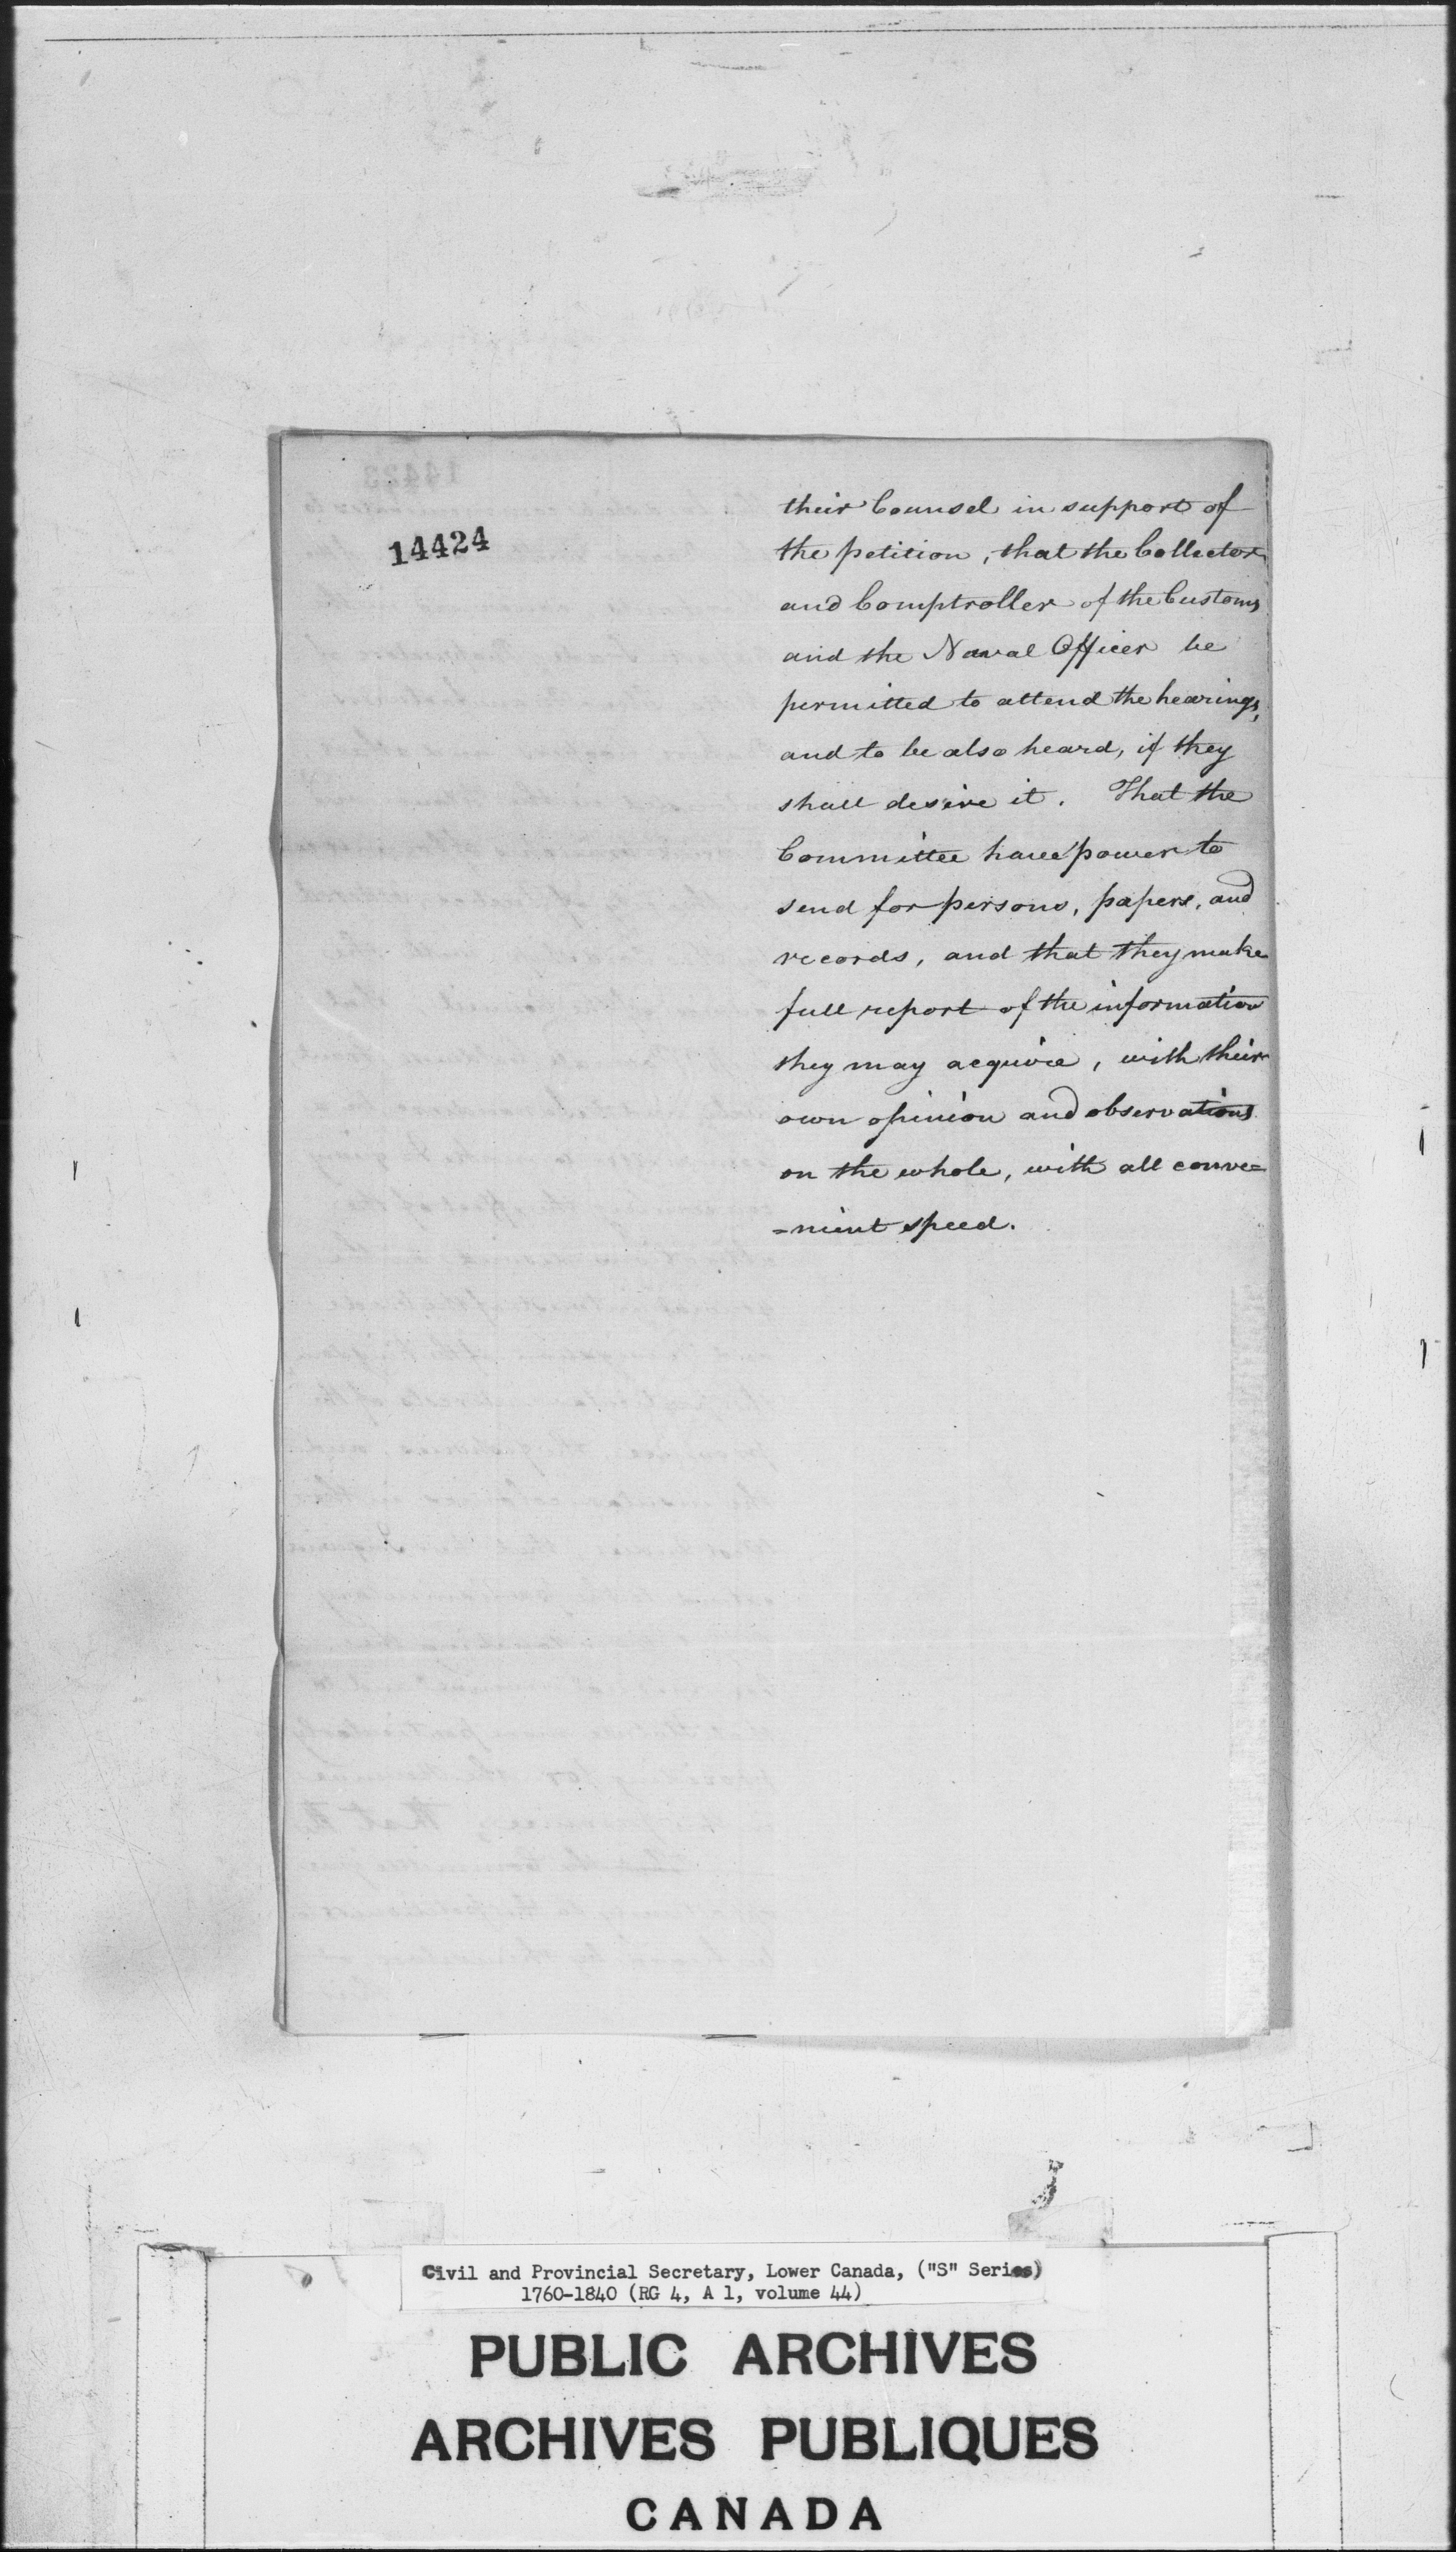 14424
their Counsel in support of
the petition, that the Collector
and Comptroller of the Customs
and the Naval Officer be
permitted to attend the hearings,
and to be also heard, if they
shall desire it. That the
Committee have power to
send for persons, papers, and
records, and that they make
full report of the information
they may acquire, with their
own opinion and observations
on the whole, with all conve=
=nient speed.
Civil and Provincial Secretary, Lower Canada, ("S" Series)
1760-1840 (RG 4, A 1, volume 44)
PUBLIC ARCHIVES
ARCHIVES PUBLIQUES
CANADA